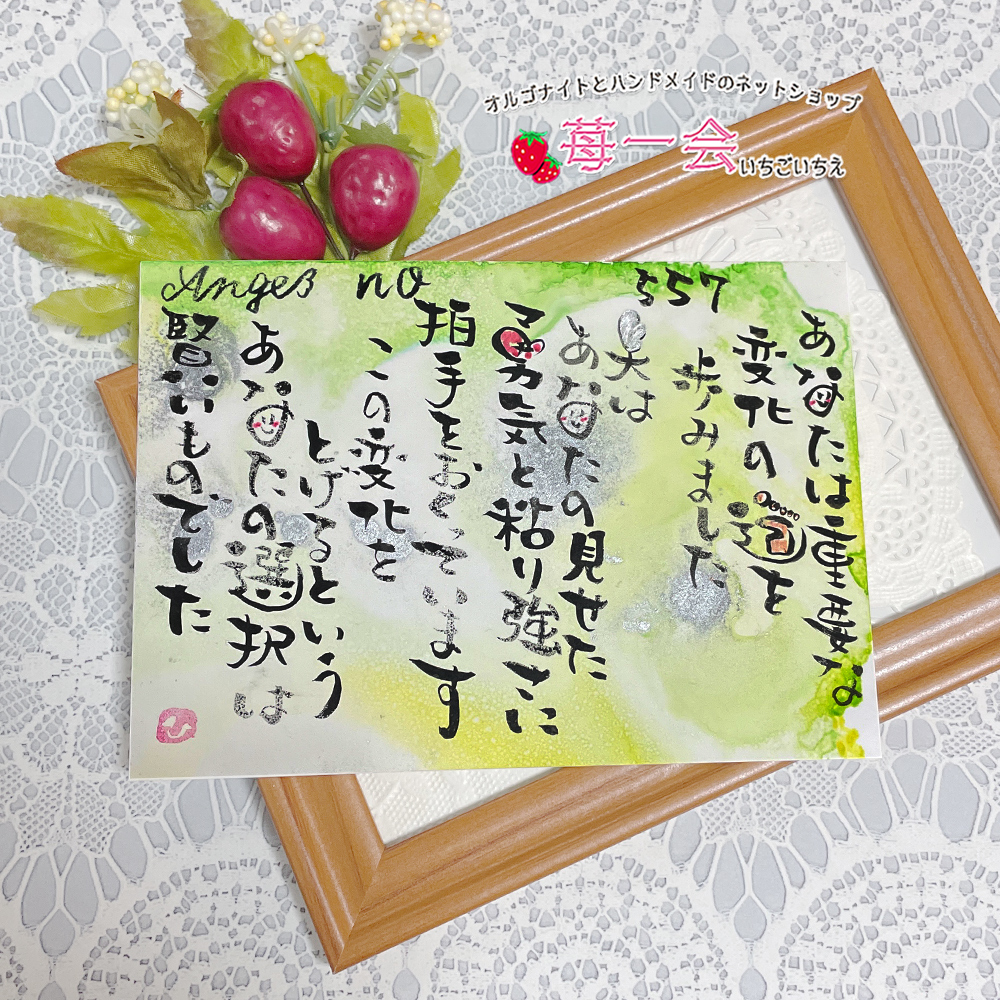 オルゴナイトとハンドメイドのネットショップ
苺一会
いちごいちえ
Angel no 557
あなたは重要な
変化の道を
歩みました
天は
あなたの見せた
勇気と粘り強さに
拍手をおくっています
この変化を
とげるという
あなたの選択は
賢いものでした
ひ